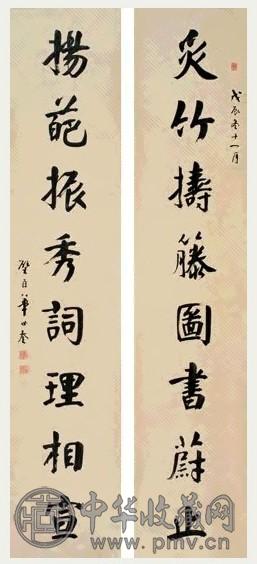 戊辰冬十一月
炙竹擣籐圖書蔚
揚葩振秀詞理相宣
璧臣華世奎
中华收藏网
www.pmv.cn